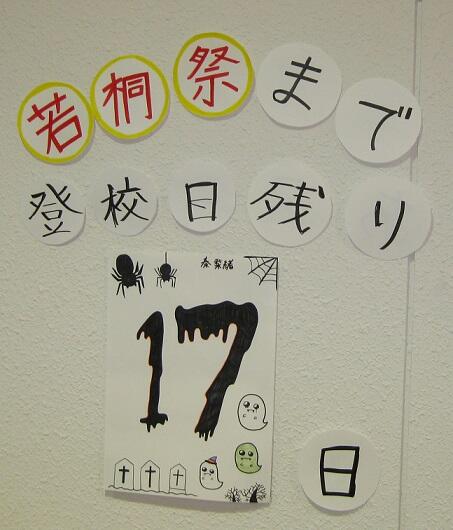 若桐祭まで
登校日残り
17
日